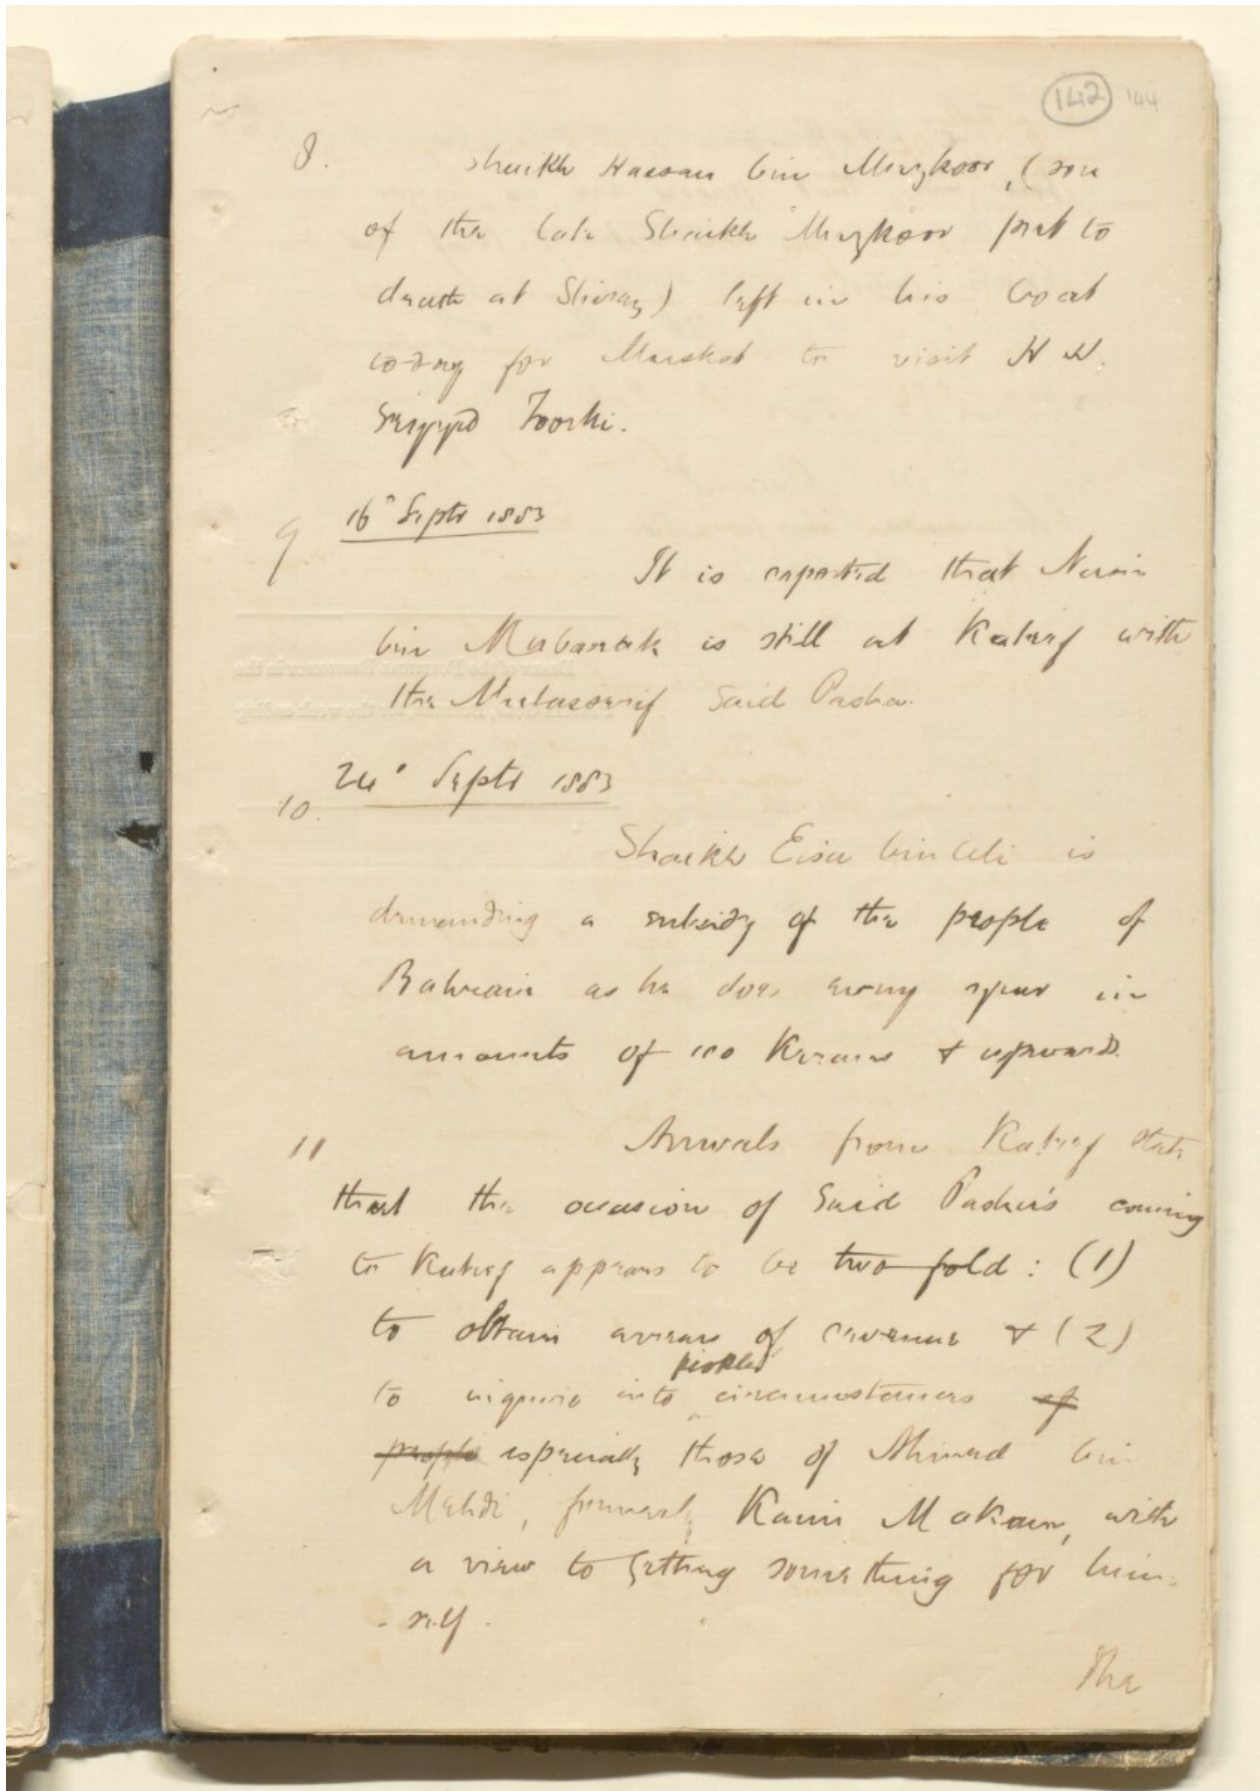 142 144
8. Shaikh Hassan bin Mezkoor, (son
of the late Shaikh Mezkoor put to
death at Shiraz) left in his boat
to-day for Muskat to visit H H.
Seyyd Toorki.
16" Septr 1883
9 It is reported that Nasir
bin Mubarak is still at Katif with
the Mutasserif Said Pasha.
24" Septr 1883
10. Shaikh Eisa bin Ali is
demanding a subsidy of the people of
Bahrain as he does every year in
amounts of 100 Krans & upwards.
11 Arrivals from Katif state
that the occasion of Said Pasha's coming
to Katif appears to be two fold: (1)
to obtain arrears of revenue & (2)
peoples
to inquire into circumstances of
people especially those of Ahmed bin
Mehdi, formerly Kaim Makam, with
a view to getting something for him-
-self.
The